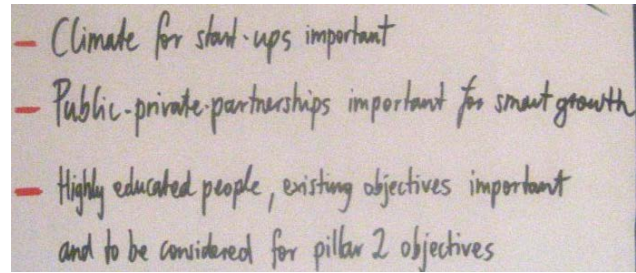 - Climate for start-ups important
- Public-private-partnerships important for smart growth
- Highly educated people, existing objectives important
and to be considered for pillar 2 objectives